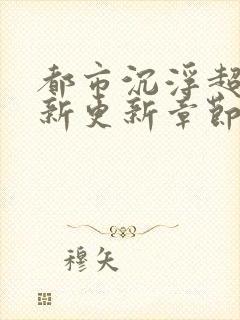 都市沉浮超
新更新章节
穆矢